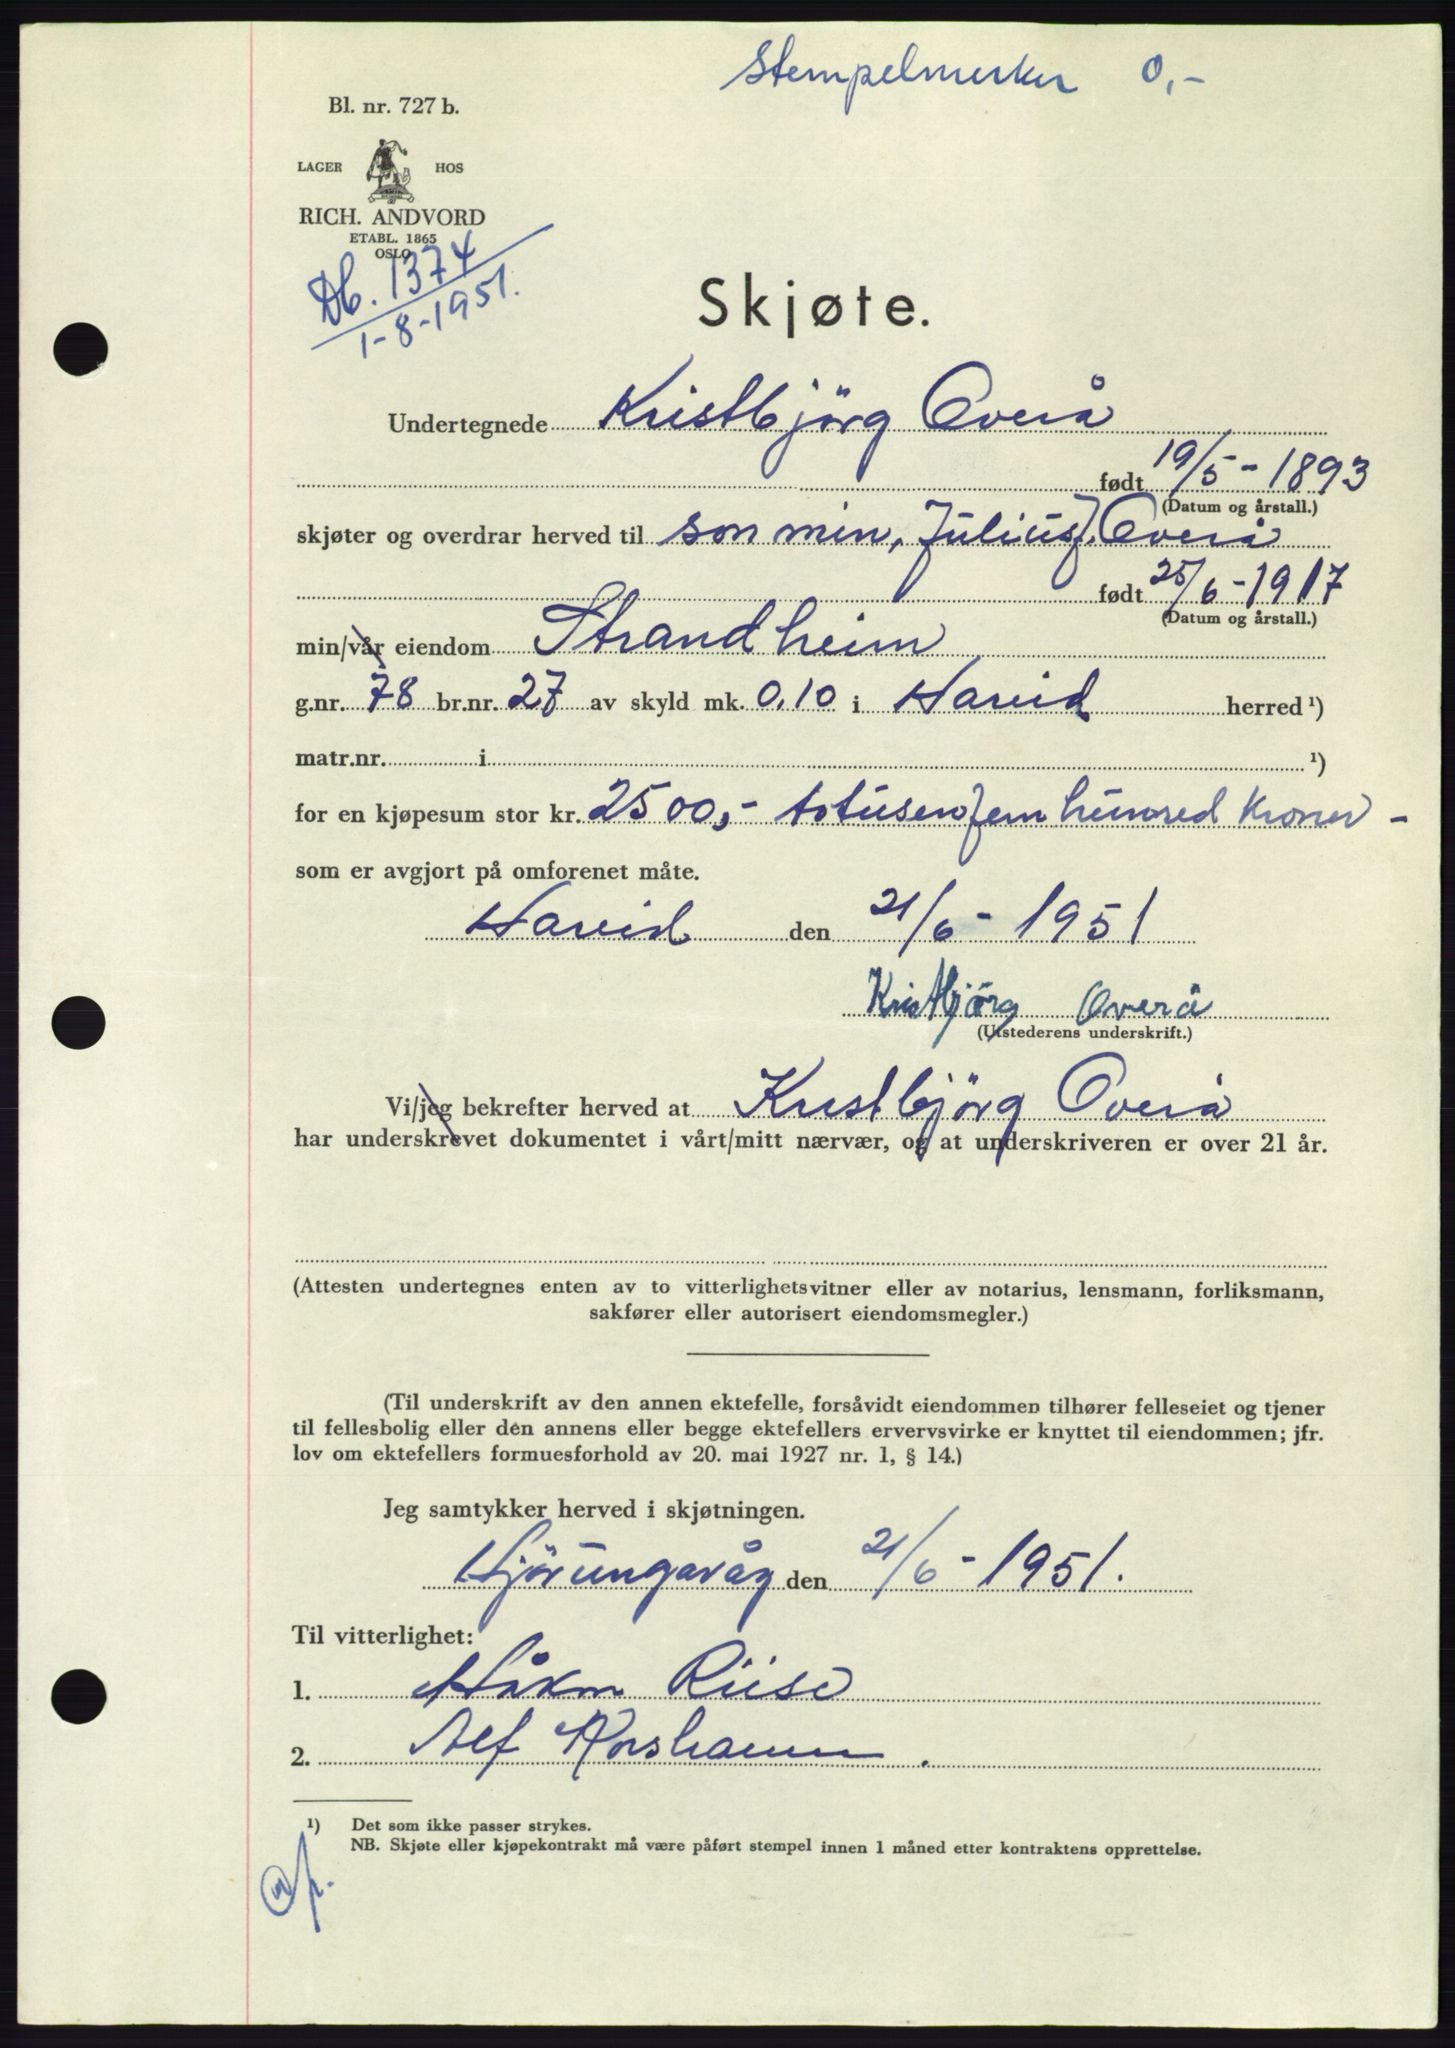 Stempelmerker 0,-
Bl. nr. 727 b.
LAGER HOS
RICH. ANDVORD
ETABL. 1865
OSLO
Db. 1374
1-8-1951.
Skjøte.
Undertegnede Kristbjörg Overå
født 19/5-1893
(Datum og årstall.)
skjøter og overdrar herved til son min, Julius J. Overå
født 25/6-1917
(Datum og årstall.)
min/vår eiendom Strandheim
g.nr. 78 br.nr. 27 av skyld mk. 0,10 i Hareid herred ¹)
matr.nr. i ¹)
for en kjøpesum stor kr. 2500,- totusenfemhundred kroner -
som er avgjort på omforenet måte.
Hareid den 21/6-1951
Kristbjörg Overå
(Utstederens underskrift.)
Vi/jeg bekrefter herved at Kristbjörg Overå
har underskrevet dokumentet i vårt/mitt nærvær, og at underskriveren er over 21 år.
(Attesten undertegnes enten av to vitterlighetsvitner eller av notarius, lensmann, forliksmann,
sakfører eller autorisert eiendomsmegler.)
(Til underskrift av den annen ektefelle, forsåvidt eiendommen tilhører felleseiet og tjener
til fellesbolig eller den annens eller begge ektefellers ervervsvirke er knyttet til eiendommen; jfr.
lov om ektefellers formuesforhold av 20. mai 1927 nr. 1, § 14.)
Jeg samtykker herved i skjøtningen.
Hjörungavåg den 21/6-1951.
Til vitterlighet:
1. Håkon Riise
2. Alf Korshamn.
¹) Det som ikke passer strykes.
NB. Skjøte eller kjøpekontrakt må være påført stempel innen 1 måned etter kontraktens opprettelse.